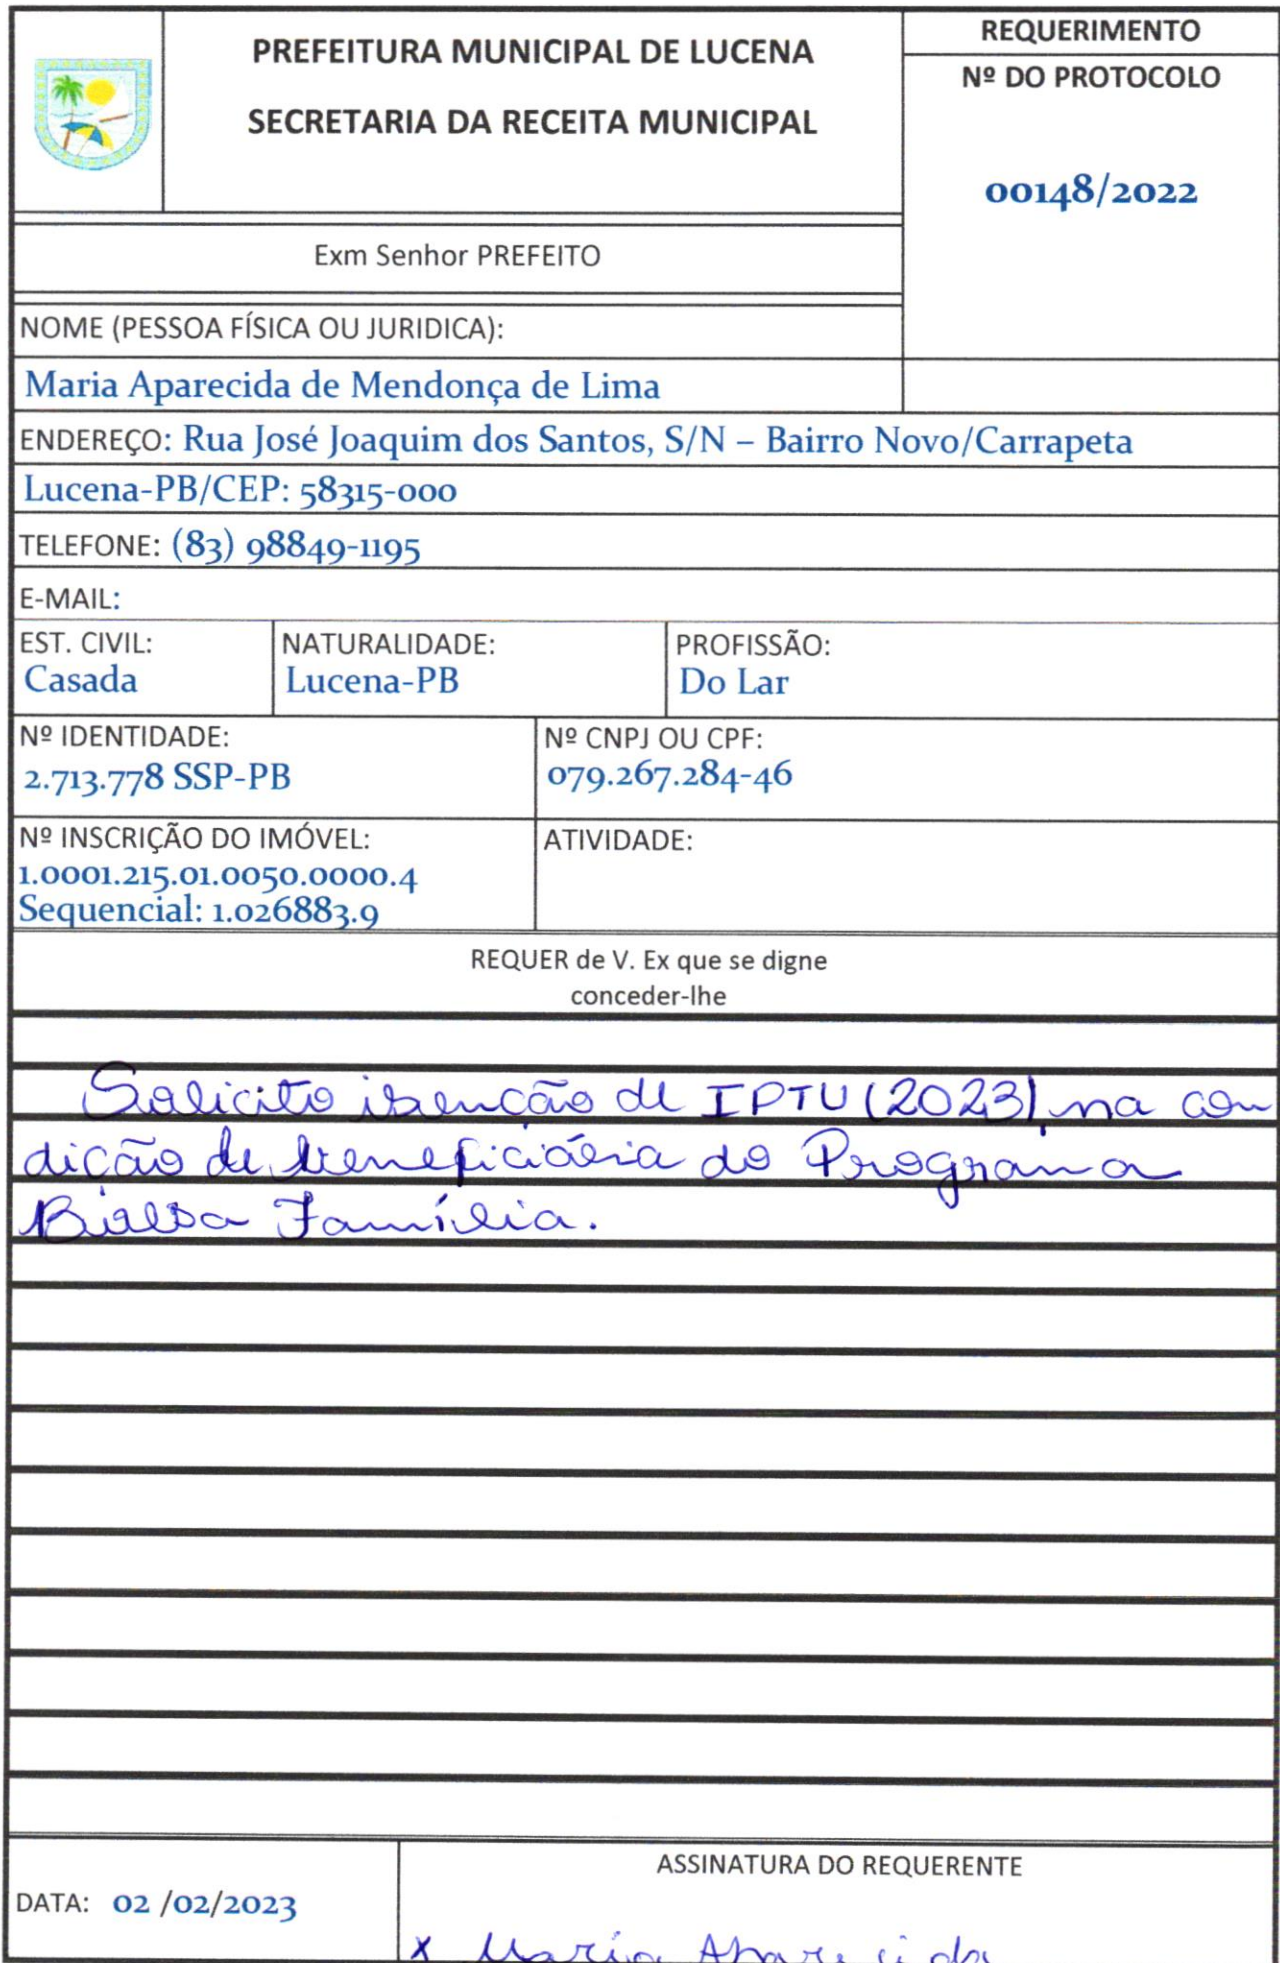 PREFEITURA MUNICIPAL DE LUCENA
SECRETARIA DA RECEITA MUNICIPAL
REQUERIMENTO
Nº DO PROTOCOLO
00148/2022
Exm Senhor PREFEITO
NOME (PESSOA FÍSICA OU JURIDICA):
Maria Aparecida de Mendonça de Lima
ENDEREÇO: Rua José Joaquim dos Santos, S/N – Bairro Novo/Carrapeta
Lucena-PB/CEP: 58315-000
TELEFONE: (83) 98849-1195
E-MAIL:
EST. CIVIL:
Casada
NATURALIDADE:
Lucena-PB
PROFISSÃO:
Do Lar
Nº IDENTIDADE:
2.713.778 SSP-PB
Nº CNPJ OU CPF:
079.267.284-46
Nº INSCRIÇÃO DO IMÓVEL:
1.0001.215.01.0050.0000.4
Sequencial: 1.026883.9
ATIVIDADE:
REQUER de V. Ex que se digne
conceder-lhe
Solicito isenção de IPTU (2023), na con
dição de beneficiária do Programa
Bolsa Família.
DATA: 02 /02/2023
ASSINATURA DO REQUERENTE
x Maria Aparecida